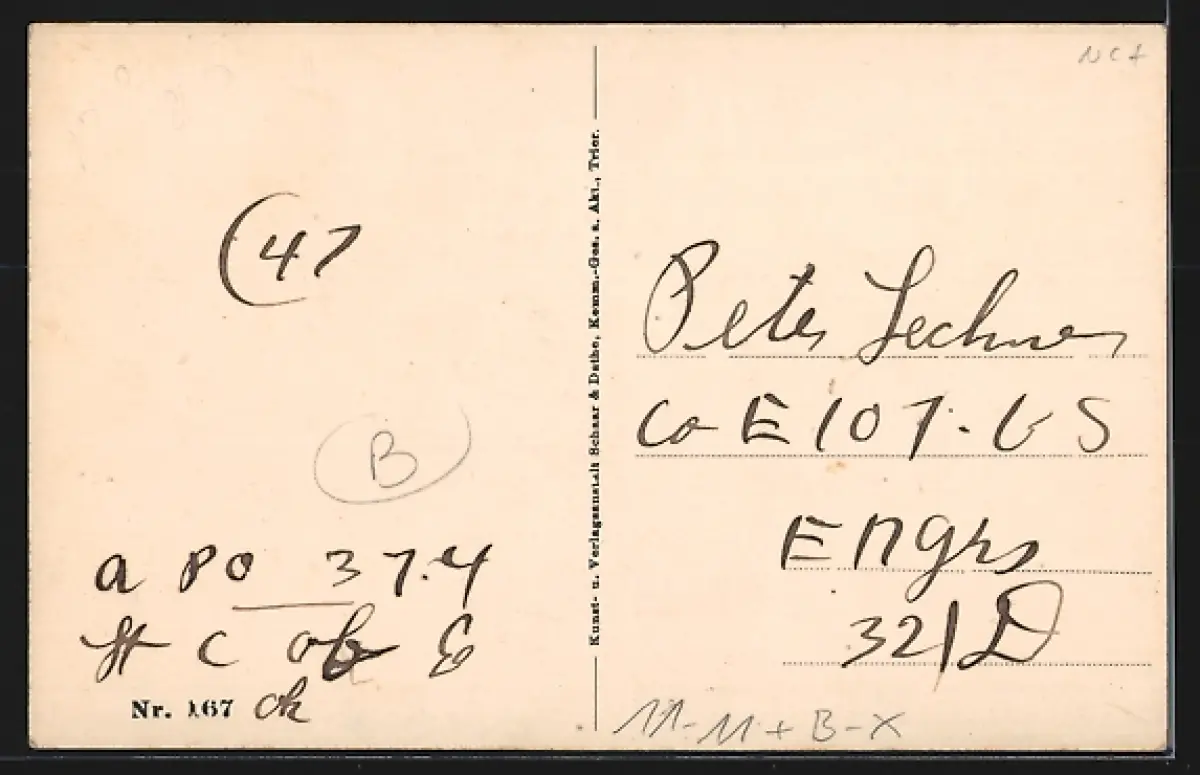 47
B
a PO 37.4
Nr. 167 ok
Kunst- u. Verlagsanstalt Schaar & Dathe, Komm.-Ges. a. Akt., Trier.
Peter Lechner
Co E 107. US
Engrs
32 D
11-11+B-X